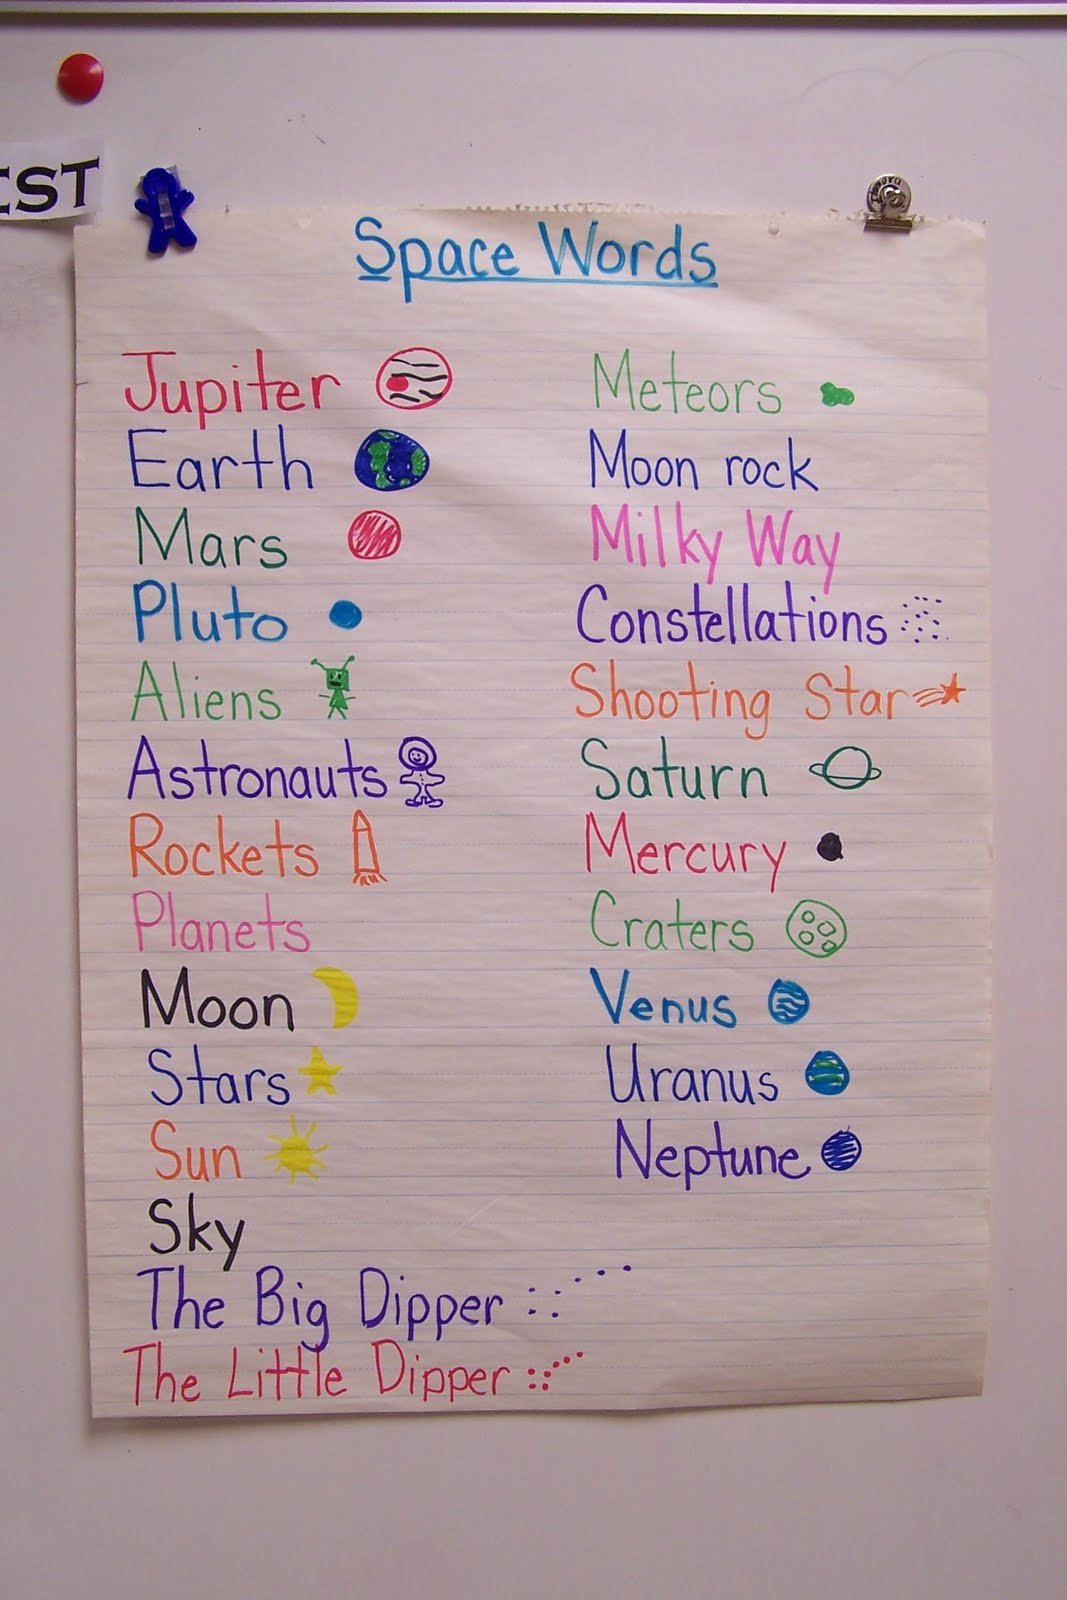 IST
Space Words
Jupiter
Earth
Mars
Pluto
Aliens
Astronauts
Rockets
Planets
Moon
Stars
Sun
Sky
The Big Dipper
The Little Dipper
Meteors
Moon rock
Milky Way
Constellations
Shooting Star
Saturn
Mercury
Craters
Venus
Uranus
Neptune